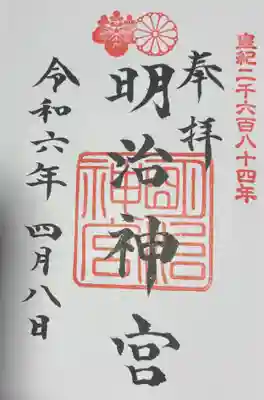 皇紀二千六百八十四年
奉拝
明治神宮
明治神宮
令和六年 四月八日